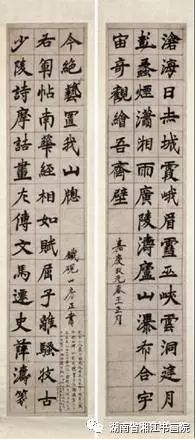 滄海日赤城霞峨眉雪巫峽雲洞庭月
彭蠡煙瀟湘雨廣陵濤廬山瀑布合宇
宙奇觀繪吾齋壁
嘉慶改元春王正月
少陵詩摩詰畫左傳文馬遷史薛濤箋
右軍帖南華經相如賦屈子離騷收古
今絕藝置我山牕
湖南省湘江书画院